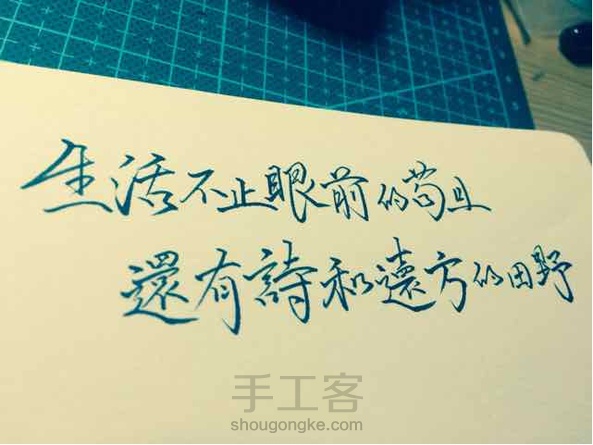 生活不止眼前的苟且
還有詩和遠方的田野
手工客
shougongke.com